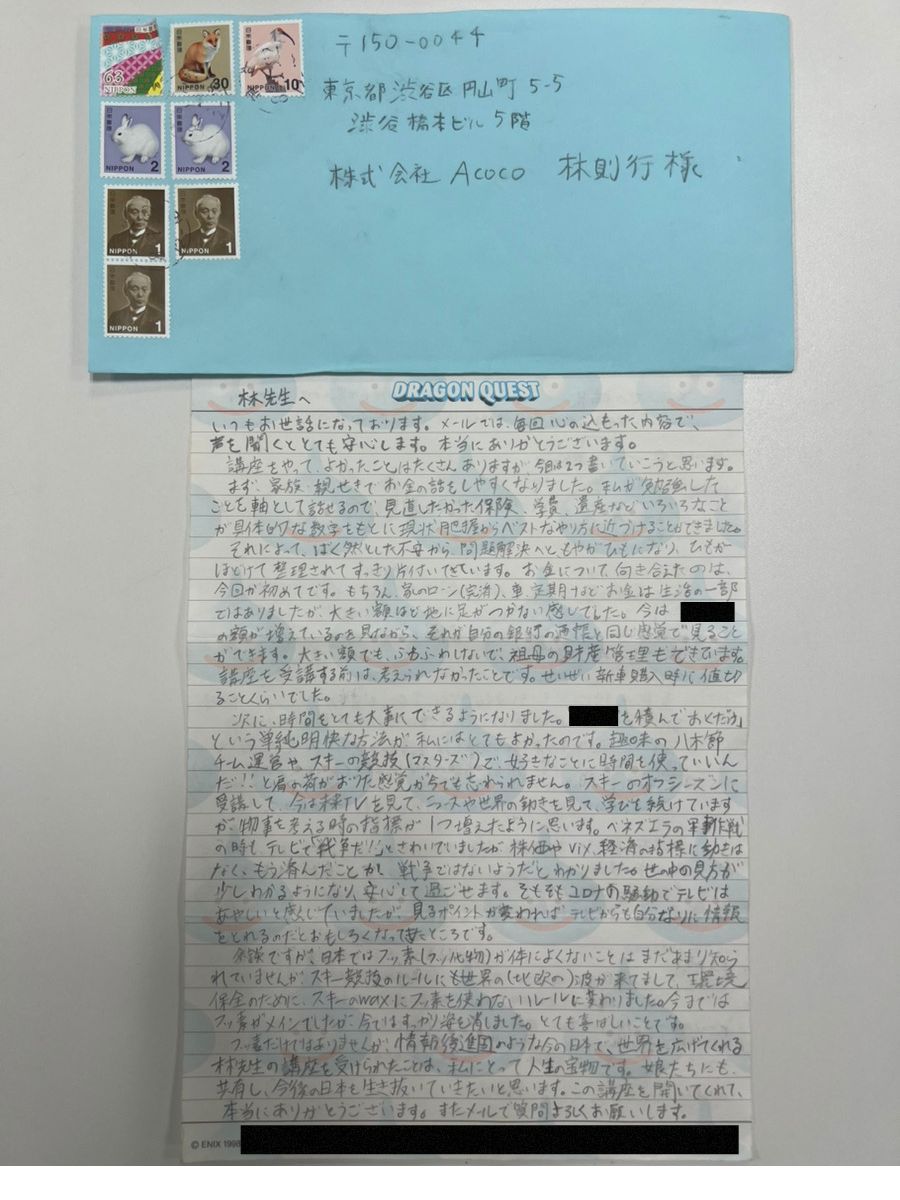 63
NIPPON
日本郵便
30
NIPPON
日本郵便
10
NIPPON
日本郵便
NIPPON 2
日本郵便
NIPPON 2
日本郵便
NIPPON 1
日本郵便
NIPPON 1
日本郵便
NIPPON 1
〒150-0044
東京都渋谷区円山町5-5
渋谷橋本ビル5階
株式会社Acoco 林則行様
DRAGON QUEST
林先生へ
いつもお世話になっております。メールでは、毎回心の込もった内容で、
声を聞くととても安心します。本当にありがとうございます。
講座をやって、よかったことはたくさんありますが、今日は2つ書いていこうと思います。
まず、家族・親せきでお金の話をしやすくなりました。私が勉強した
ことを軸として話せるので、見直したかった保険、学費、遺産などいろいろなこと
が具体的な数字をもとに現状把握からベストなやり方に近づけることができました。
それによって、ばく然とした不安から、問題解決へともやがひもになり、ひもが
ほどけて整理されてすっきり片付いてきています。お金について、向き合えたのは、
今回が初めてです。もちろん、家のローン(完済)、車、定期などお金は生活の一部
ではありましたが、大きい額ほど地に足がつかない感じでした。今は
の額が増えているのを見ながら、それが自分の銀行の通信と同じ感覚で見ること
ができます。大きい額でも、ふわふわしないで、祖母の財産管理もできています。
講座を受講する前は、考えられなかったことです。せいぜい新車購入時に値切
ることくらいでした。
次に、時間をとても大事にできるようになりました。 を積んでおくだけ」
という単純明快な方法が私にはとてもよかったのです。趣味の八木節
チーム運営や、スキーの競技(マスターズ)で、好きなことに時間を使っていいん
だ!!と肩の荷がおりた感覚が今でも忘れられません。スキーのオフシーズンに
受講して、今は株TVを見て、ニュースや世界の動きを見て、学びを続けています
が、物事を考える時の指標が1つ増えたように思います。ベネズエラの軍事作戦
の時も、テレビで「戦争だ!!」とさわいでいましたが、株価やVix、経済の指標に動きは
なく、もう済んだことか、戦争ではないようだとわかりました。世の中の見方が
少しわかるようになり、安心して過ごせます。そもそもコロナの騒動でテレビは
あやしいと感じていましたが、見るポイントが変われば、テレビからも自分なりに情報
をとれるのだとおもしろくなってきたところです。
余談ですが、日本ではフッ素(フッ化物)が体によくないことはまだあまり知ら
れていませんが、スキー競技のルールにも世界の(北欧の)波が来てまして、環境
保全のために、スキーのwaxにフッ素を使わないルールに変わりました。今までは
フッ素がメインでしたが、今ではすっかり姿を消しました。とても喜ばしいことです。
フッ素だけではありませんが、情報後進国のような今の日本で、世界を広げてくれる
林先生の講座を受けられたことは、私にとって人生の宝物です。娘たちにも、
共有し、今後の日本を生き抜いていきたいと思います。この講座を開いてくれて、
本当にありがとうございます。またメールで質問よろしくお願いします。
© ENIX 1998